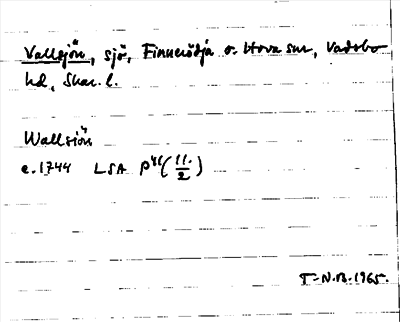 Vallsjön, sjö, Finnerödja o. Hova snr, Vadsbo
hd, Skar. l.
Wallsiön
c. 1744 LSA P41(11:2)
T-N.B. 1965.